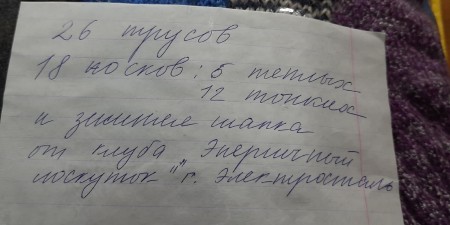 26 трусов
18 носков: 6 теплых
12 тонких
и зимняя шапка
от клуба "Энергичный
лоскуток" г. Электросталь